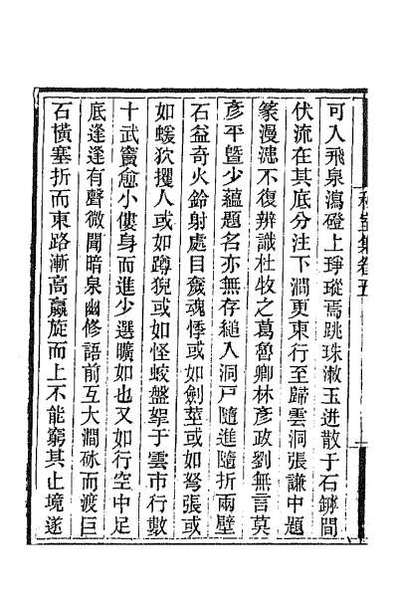 可入飛泉瀉磴上琤瑽焉跳珠漱玉迸散于石罅間
伏流在其底分注下澗更東行至歸雲洞張謙中題
篆漫漶不復辨識杜牧之葛魯卿林彥政劉無言莫
彥平曁少蘊題名亦無存縋入洞戸隨進隨折兩壁
石益奇火鈴射處目𥉻魂悸或如劍莖或如弩張或
如蝯狖攫人或如蹲猊或如怪蛟盤拏于雲市行數
十武竇愈小僂身而進少選曠如也又如行空中足
底逢逢有聲微聞暗泉幽修語前互大澗砅而渡巨
石橫塞折而東路漸高蠃旋而上不能窮其止境遂
集卷五